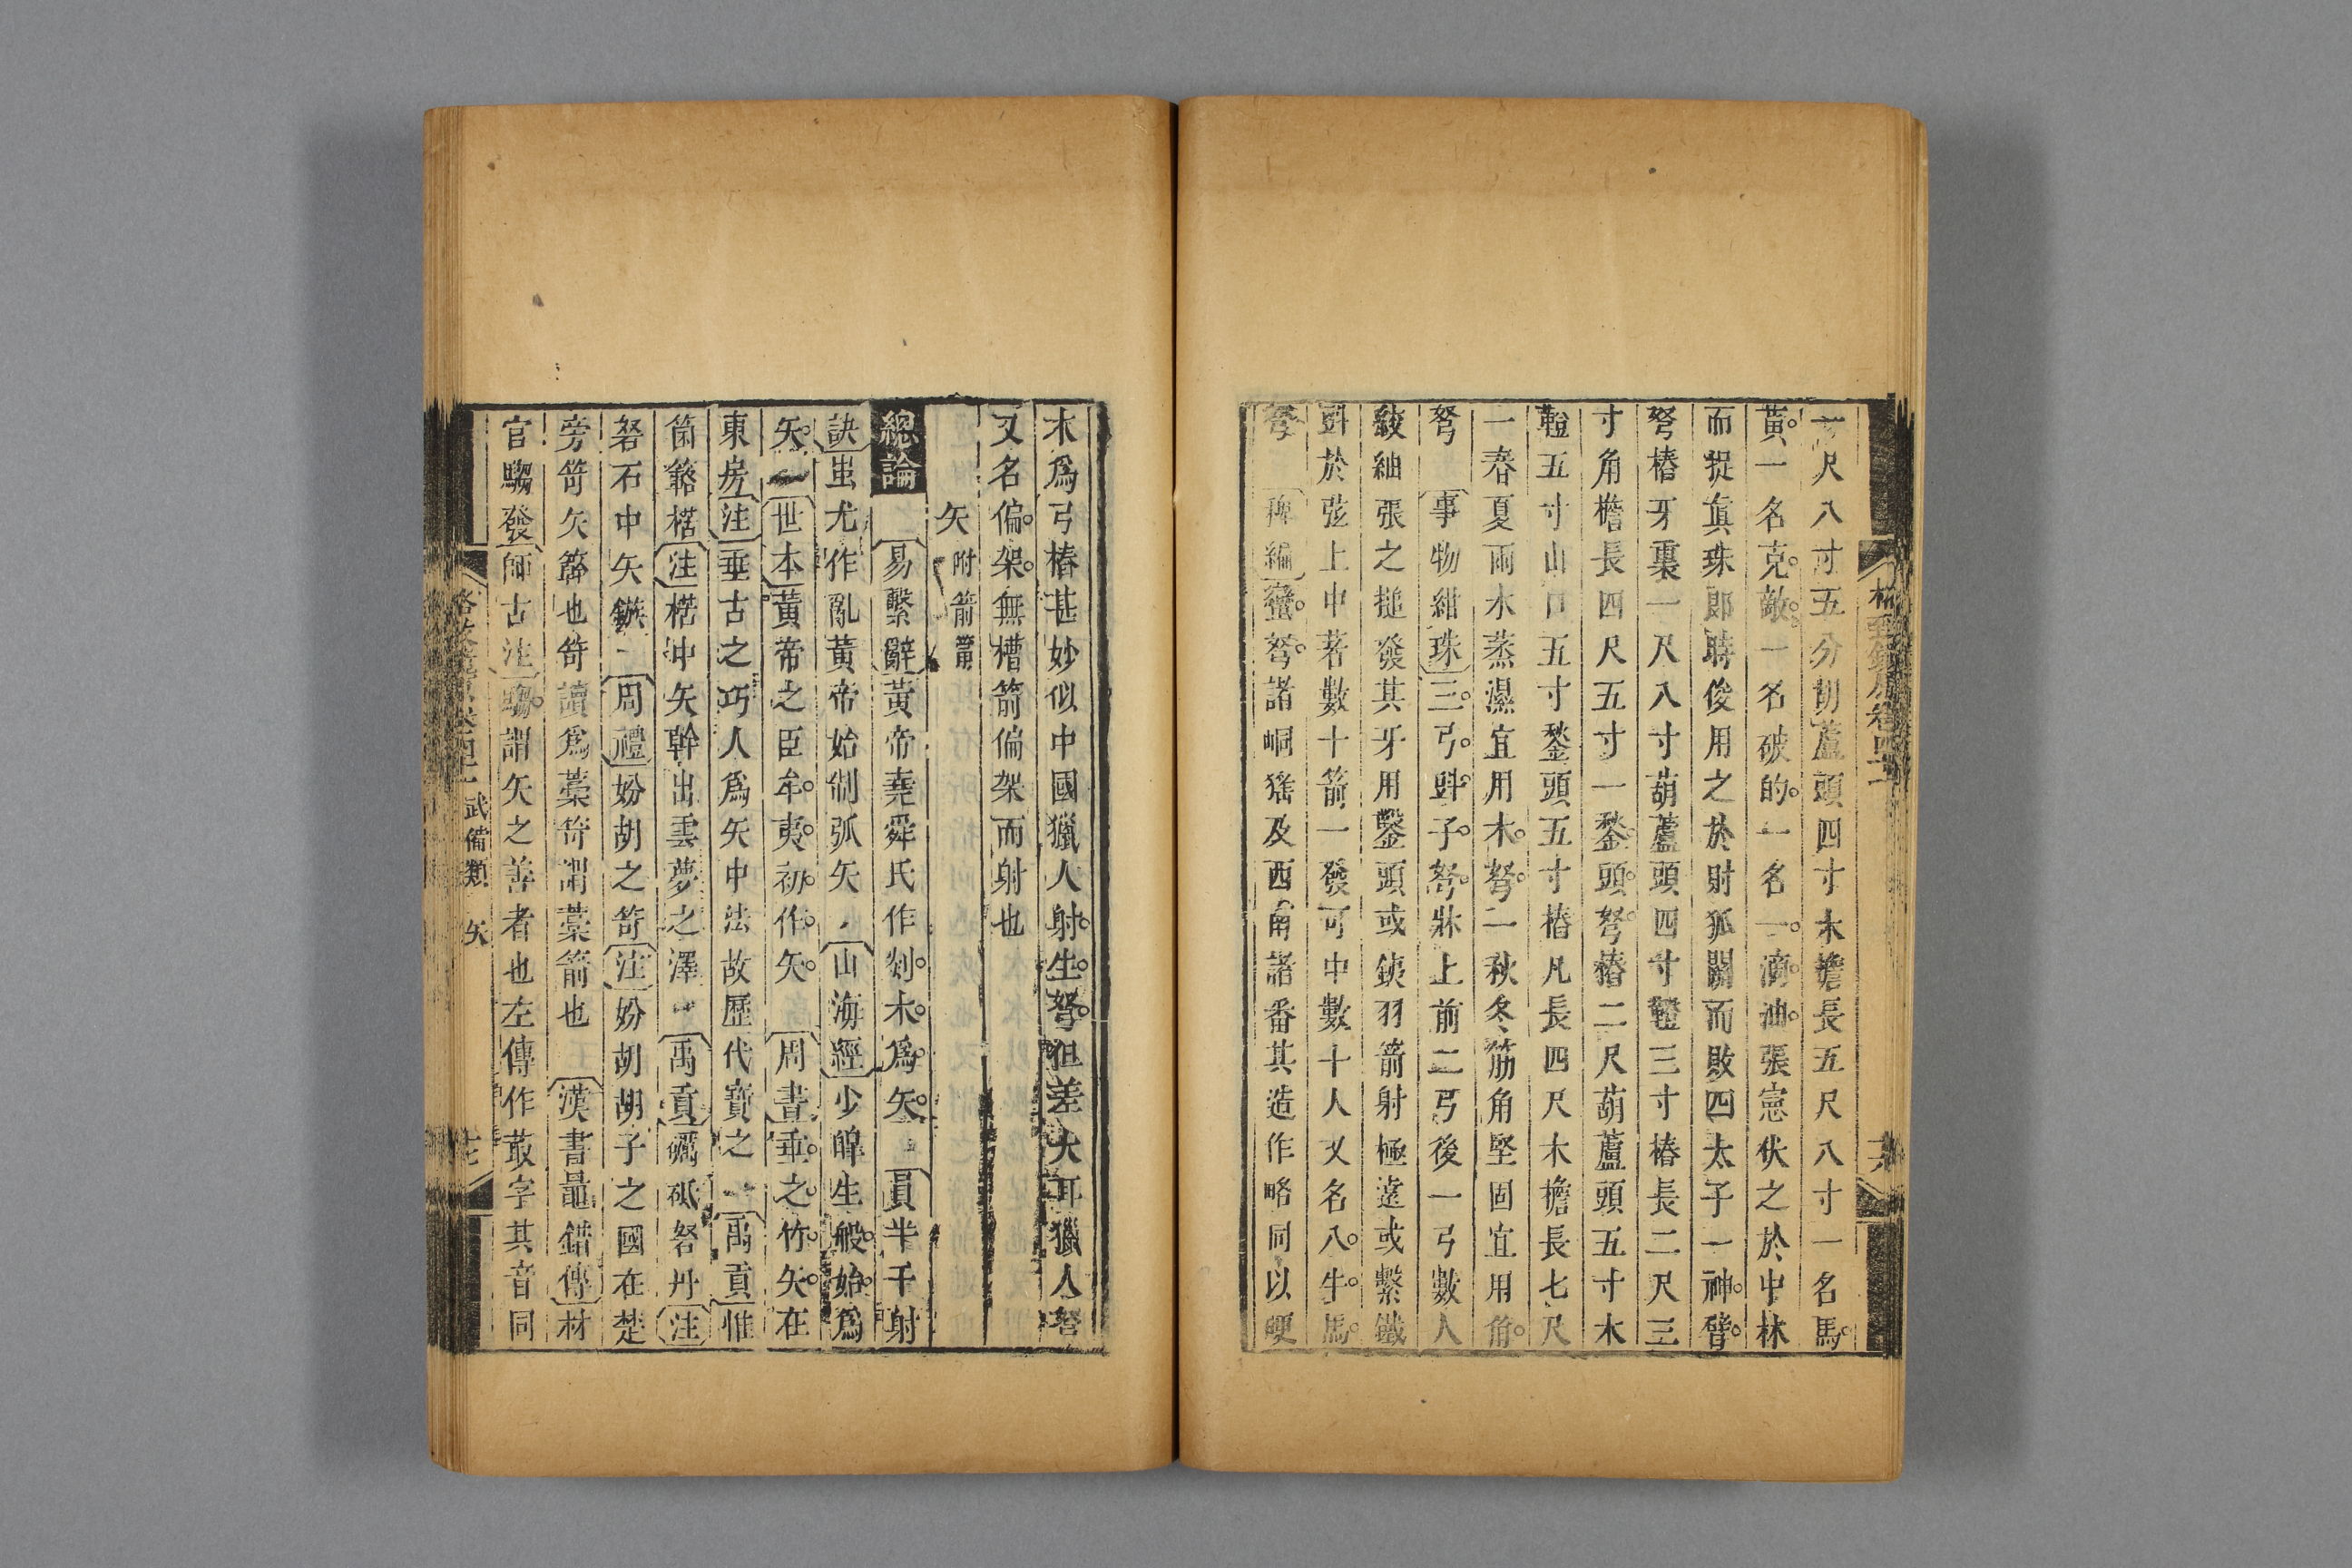 尺八寸五分胡蘆頭四寸木檐長五尺八寸一名馬
黃一名克敵一名破的一名一滴油張憲伏之於中林
而捉眞珠郎時俊用之於射狐關而敗四太子一神臂
弩樁牙裏一尺八寸葫蘆頭四寸鐙三寸樁長二尺三
寸角檐長四尺五寸一鍫頭弩樁二尺葫蘆頭五寸木
鞾五寸山口五寸鍫頭五寸樁凡長四尺木擔長七尺
一春夏雨水蒸濕宜用木弩二秋冬筋角堅固宜用角
弩 事物紺珠三弓㪷子弩牀上前二弓後一弓數人
絞紬張之搥發其牙用鑿頭或鐵羽箭射極遠或繫鐵
㪷於弦上中著數十箭一發可中數十人又名八牛馬
弩 稗編蠻弩諸峒猺及西南諸番其造作略同以硬
木爲弓樁甚妙似中國獵人射生弩但差大耳獵人弩
又名偏架無槽箭偏架而射也
矢 附箭箙
總論 易繫辭黃帝堯舜氏作剡木爲矢 員半千射
訣蚩尤作亂黃帝始制弧矢 山海經少皥生般始爲
矢 世本黃帝之臣牟夷初作矢 周書垂之竹矢在
東房注垂古之巧人爲矢中法故歷代寶之 禹貢惟
箘簵楛注楛中矢幹出雲夢之澤 禹貢礪砥砮丹注
砮石中矢鏃 周禮妢胡之笴注妢胡胡子之國在楚
旁笴矢簳也笴讀爲藁笴謂藁箭也 漢書鼂錯傳材
官騶發師古注騶謂矢之善者也左傳作菆字其音同
武備類 矢